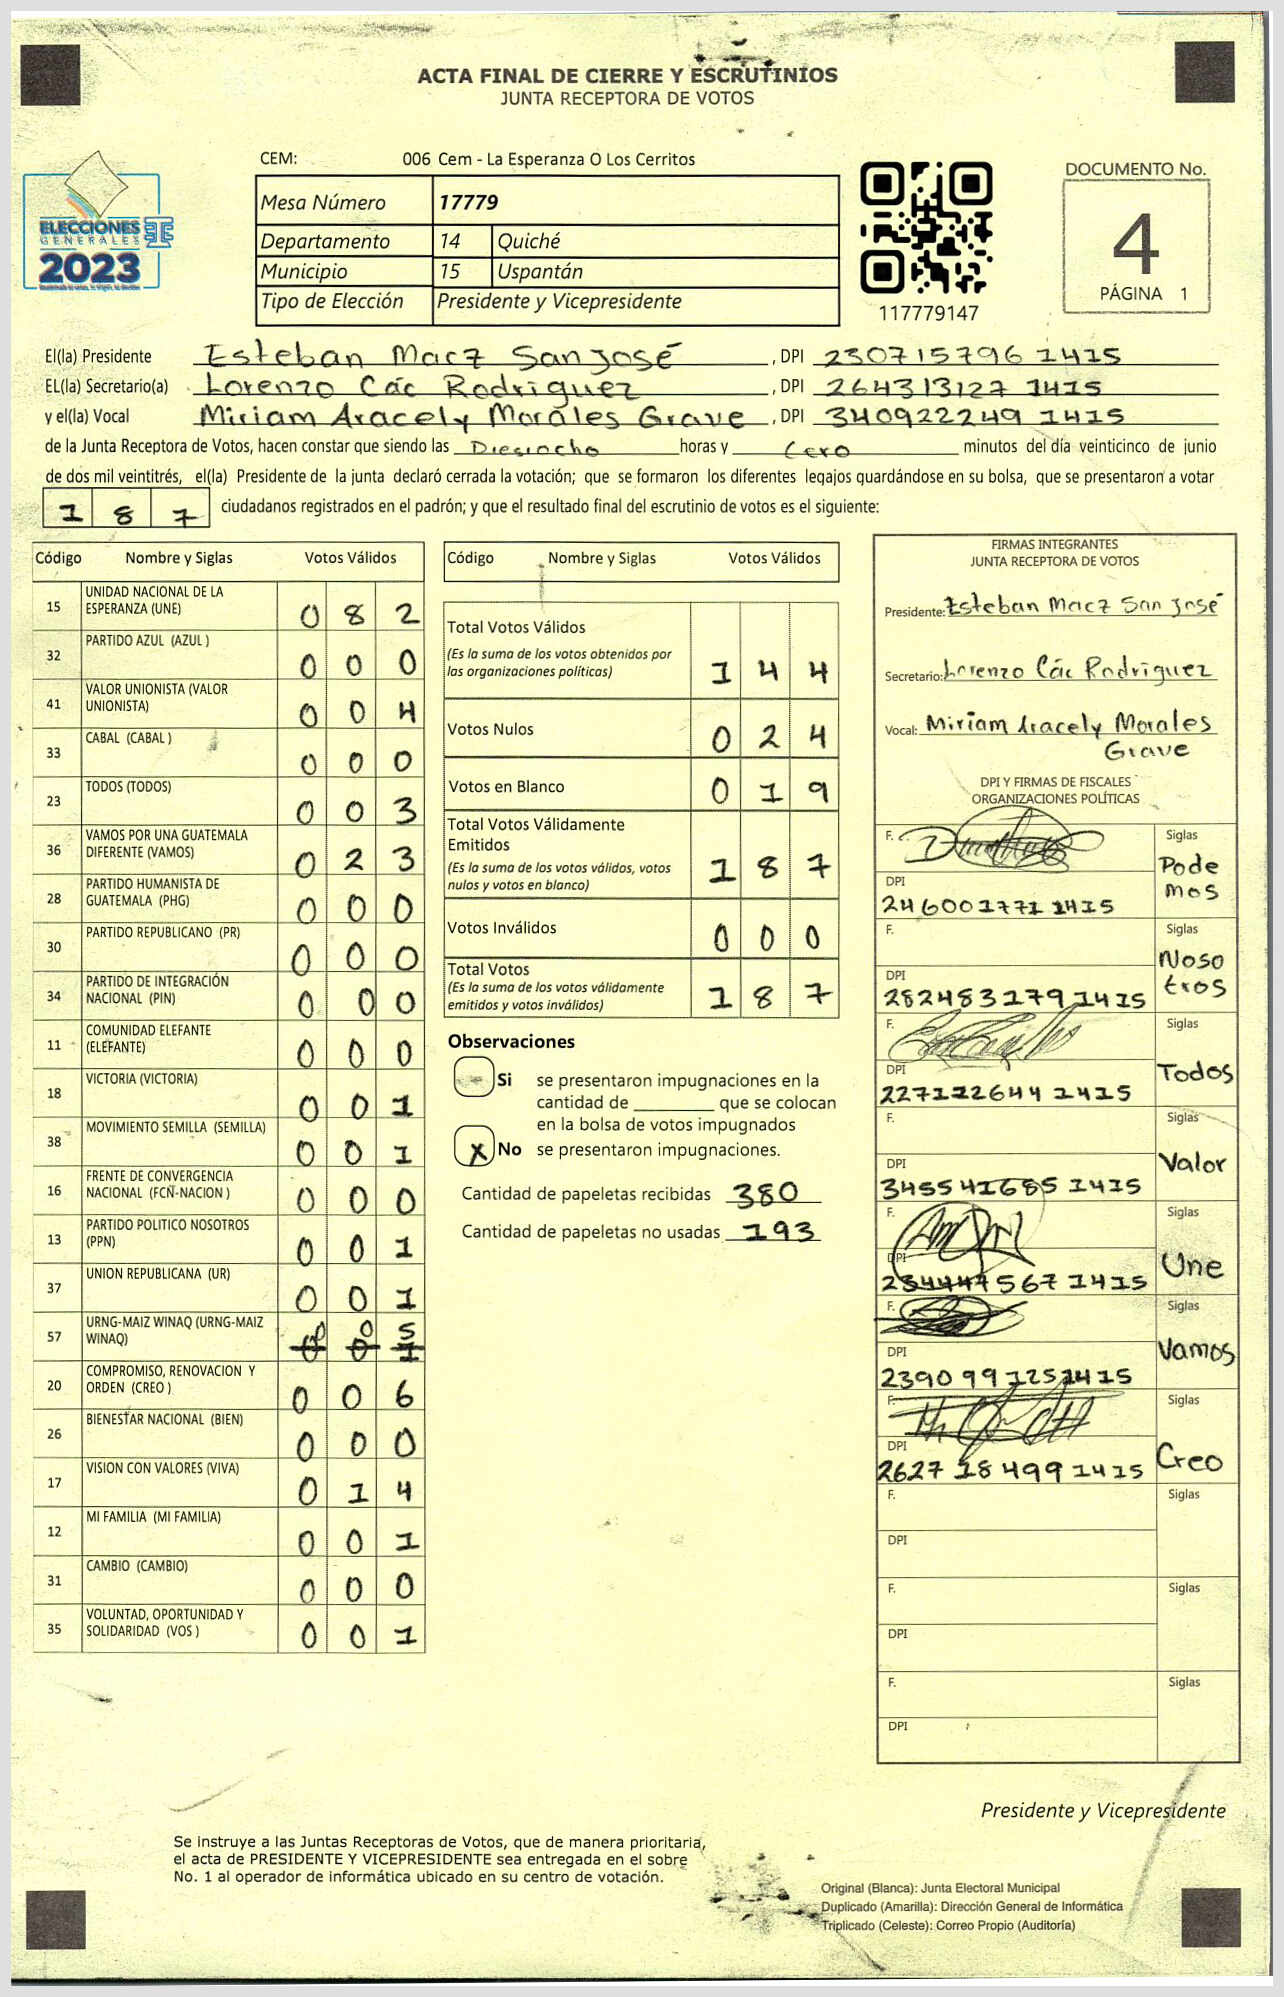 ACTA FINAL DE CIERRE Y ESCRUTINIOS
JUNTA RECEPTORA DE VOTOS
ELECCIONES
GENERALES
2023
CEM: 006 Cem - La Esperanza O Los Cerritos
Mesa Número 17779
Departamento 14 Quiché
Municipio 15 Uspantán
Tipo de Elección Presidente y Vicepresidente
117779147
DOCUMENTO No.
4
PÁGINA 1
El(la) Presidente Esteban Macz San José, DPI 230715796 1415
EL(la) Secretario(a) Lorenzo Các Rodriguez, DPI 264313127 1415
y el(la) Vocal Miriam Aracely Morales Grave, DPI 340922249 1415
de la Junta Receptora de Votos, hacen constar que siendo las Diesiocho horas y Cero minutos del día veinticinco de junio
de dos mil veintitrés, el(la) Presidente de la junta declaró cerrada la votación; que se formaron los diferentes legajos guardándose en su bolsa, que se presentaron a votar
1 8 7 ciudadanos registrados en el padrón; y que el resultado final del escrutinio de votos es el siguiente:
Código Nombre y Siglas Votos Válidos
15 UNIDAD NACIONAL DE LA
ESPERANZA (UNE) 0 8 2
32 PARTIDO AZUL (AZUL ) 0 0 0
41 VALOR UNIONISTA (VALOR
UNIONISTA) 0 0 4
33 CABAL (CABAL ) 0 0 0
23 TODOS (TODOS) 0 0 3
36 VAMOS POR UNA GUATEMALA
DIFERENTE (VAMOS) 0 2 3
28 PARTIDO HUMANISTA DE
GUATEMALA (PHG) 0 0 0
30 PARTIDO REPUBLICANO (PR) 0 0 0
34 PARTIDO DE INTEGRACIÓN
NACIONAL (PIN) 0 0 0
11 COMUNIDAD ELEFANTE
(ELEFANTE) 0 0 0
18 VICTORIA (VICTORIA) 0 0 1
38 MOVIMIENTO SEMILLA (SEMILLA) 0 0 1
16 FRENTE DE CONVERGENCIA
NACIONAL (FCN-NACION ) 0 0 0
13 PARTIDO POLITICO NOSOTROS
(PPN) 0 0 1
37 UNION REPUBLICANA (UR) 0 0 1
57 URNG-MAIZ WINAQ (URNG-MAIZ
WINAQ) 0 0 5
0 0 1
20 COMPROMISO, RENOVACION Y
ORDEN (CREO ) 0 0 6
26 BIENESTAR NACIONAL (BIEN) 0 0 0
17 VISION CON VALORES (VIVA) 0 1 4
12 MI FAMILIA (MI FAMILIA) 0 0 1
31 CAMBIO (CAMBIO) 0 0 0
35 VOLUNTAD, OPORTUNIDAD Y
SOLIDARIDAD (VOS ) 0 0 1
Código Nombre y Siglas Votos Válidos
Total Votos Válidos
(Es la suma de los votos obtenidos por
las organizaciones políticas) 1 4 4
Votos Nulos 0 2 4
Votos en Blanco 0 1 9
Total Votos Válidamente
Emitidos
(Es la suma de los votos válidos, votos
nulos y votos en blanco) 1 8 7
Votos Inválidos 0 0 0
Total Votos
(Es la suma de los votos válidamente
emitidos y votos inválidos) 1 8 7
Observaciones
Si se presentaron impugnaciones en la
cantidad de ________ que se colocan
en la bolsa de votos impugnados
X No se presentaron impugnaciones.
Cantidad de papeletas recibidas 380
Cantidad de papeletas no usadas 193
FIRMAS INTEGRANTES
JUNTA RECEPTORA DE VOTOS
Presidente: Esteban Macz San José
Secretario: Lorenzo Các Rodriguez
Vocal: Miriam Aracely Morales
Grave
DPI Y FIRMAS DE FISCALES
ORGANIZACIONES POLÍTICAS
F. Siglas
Pode
mos
DPI
246001771 1415
F. Siglas
Noso
tros
DPI
282483179 1415
F. Siglas
Todos
DPI
227122644 1415
F. Siglas
Valor
DPI
345541685 1415
F. Siglas
Une
DPI
234447567 1415
F. Siglas
Vamos
DPI
239099125 1415
F. Siglas
Creo
DPI
262718499 1415
F. Siglas
DPI
F. Siglas
DPI
F. Siglas
DPI
Presidente y Vicepresidente
Se instruye a las Juntas Receptoras de Votos, que de manera prioritaria,
el acta de PRESIDENTE Y VICEPRESIDENTE sea entregada en el sobre
No. 1 al operador de informática ubicado en su centro de votación.
Original (Blanca): Junta Electoral Municipal
Duplicado (Amarilla): Dirección General de Informática
Triplicado (Celeste): Correo Propio (Auditoría)